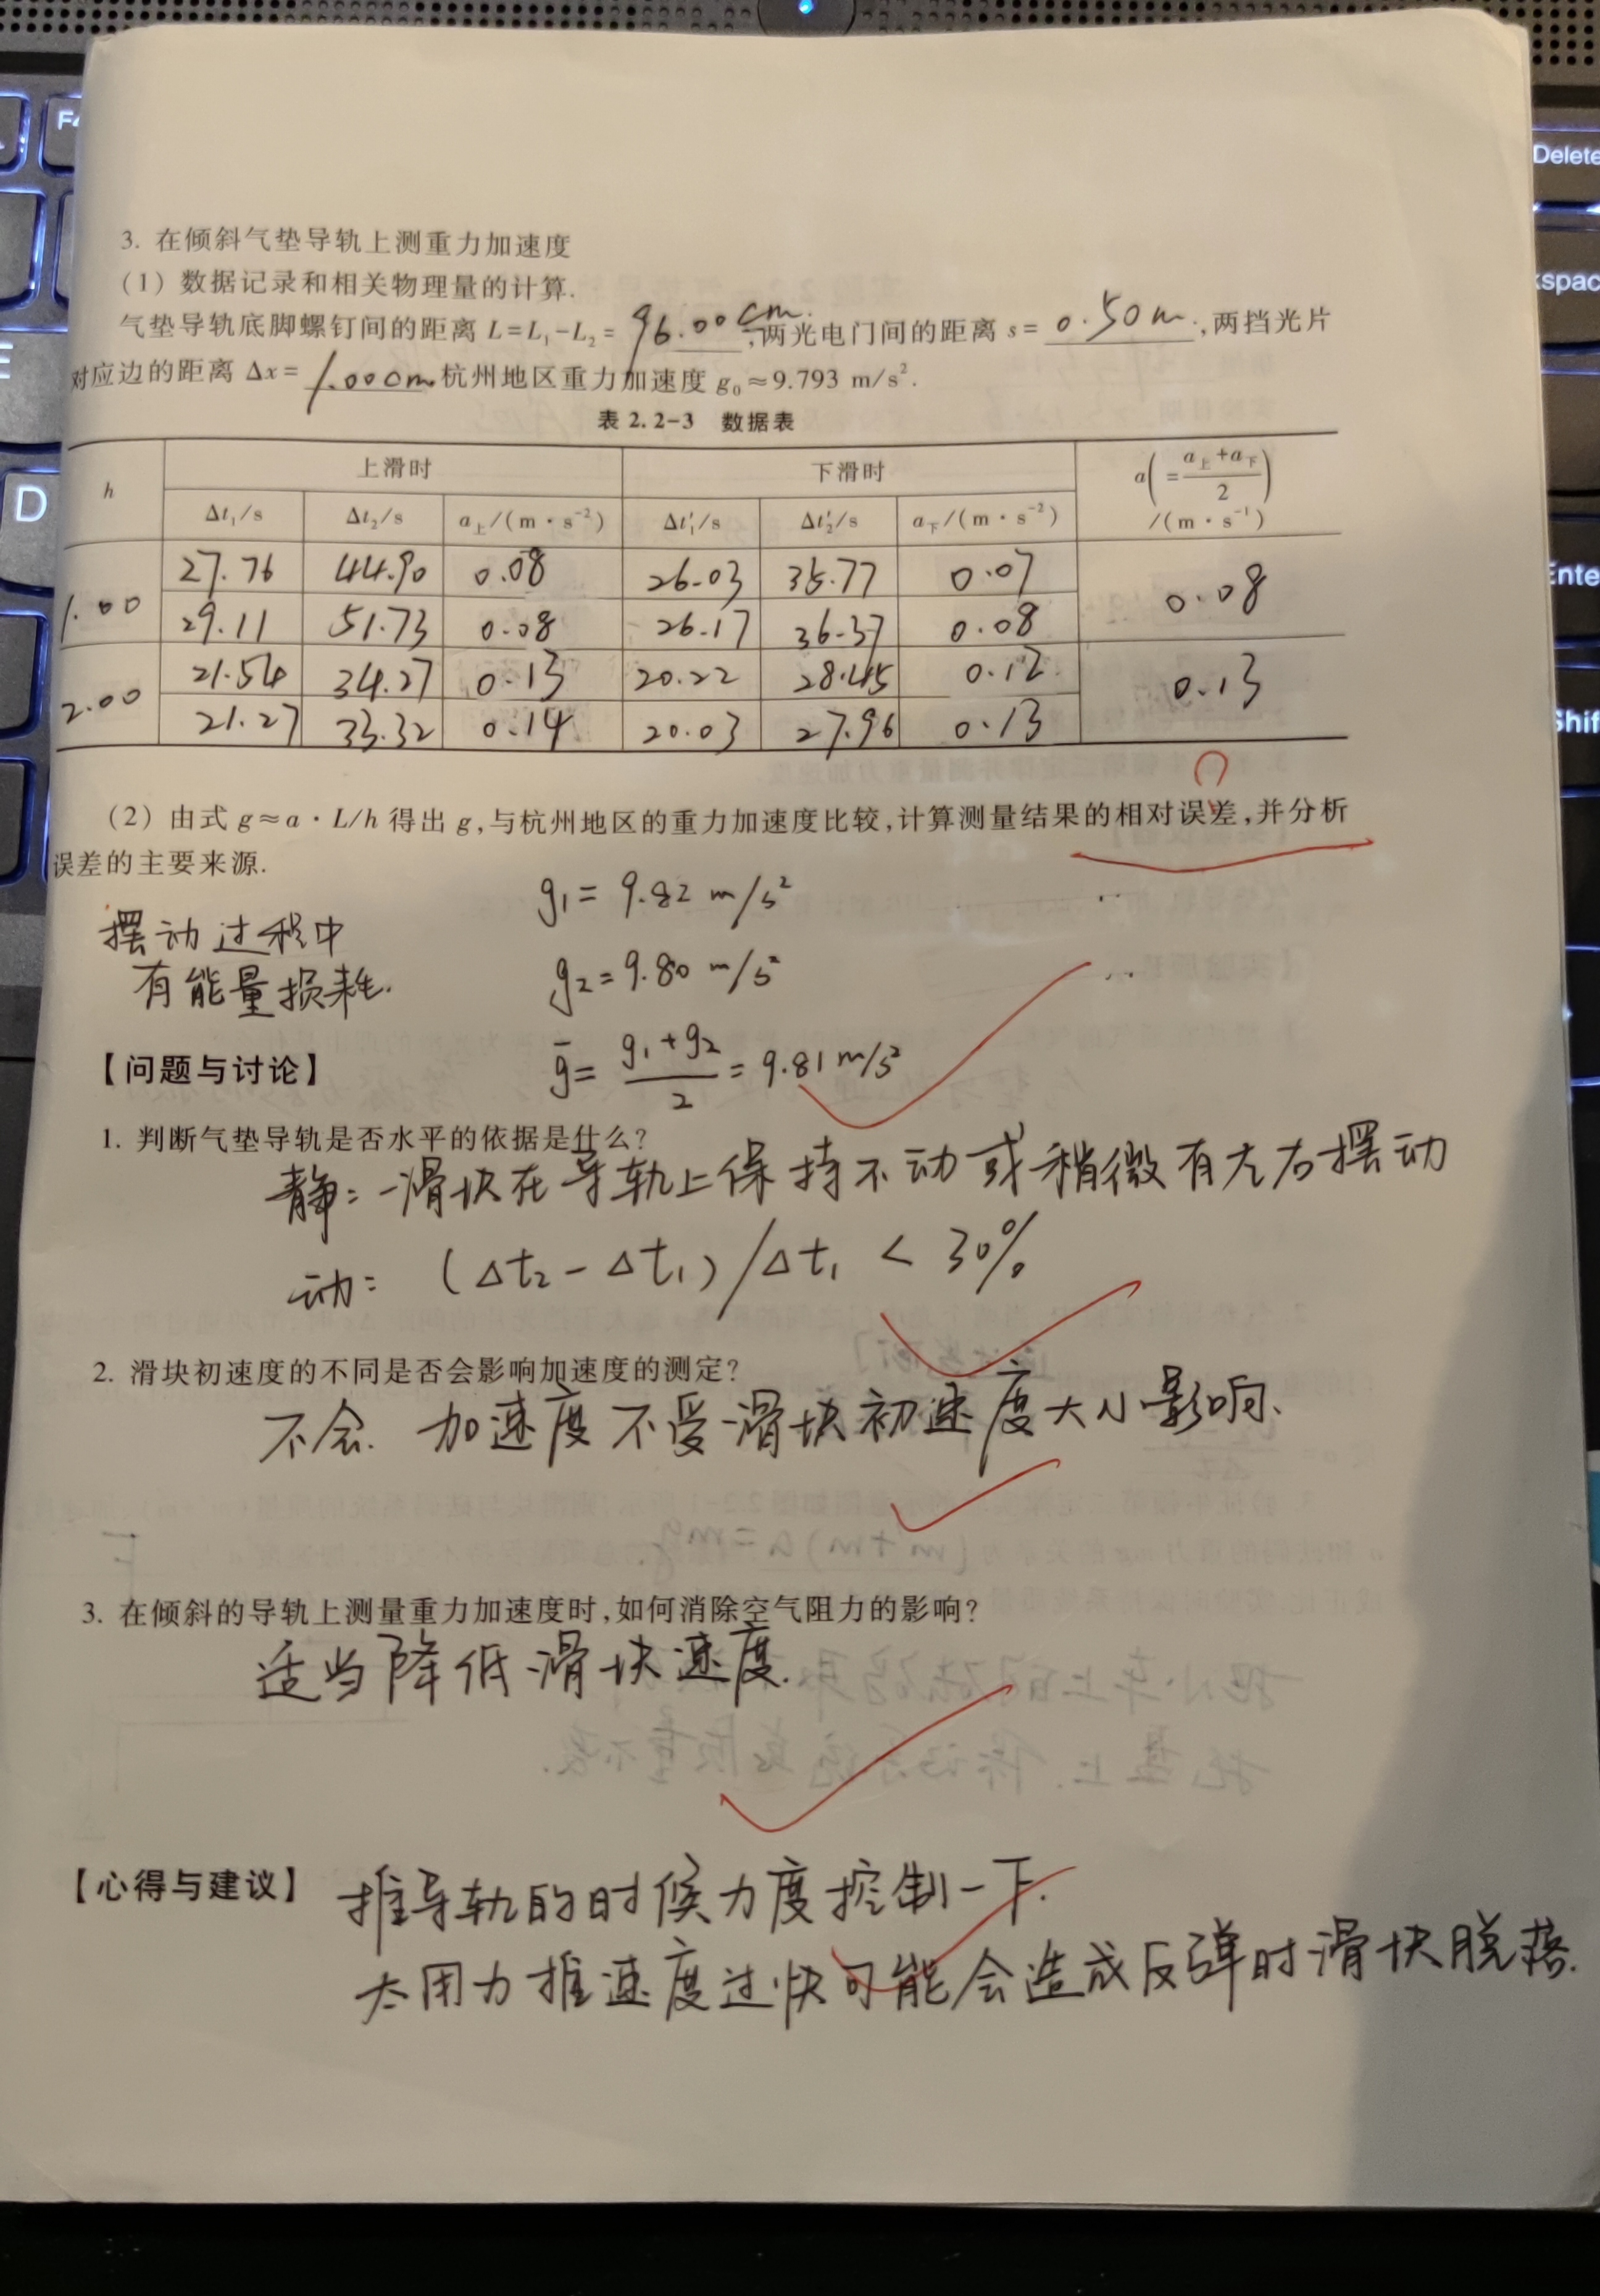 3. 在倾斜气垫导轨上测重力加速度
(1) 数据记录和相关物理量的计算.
气垫导轨底脚螺钉间的距离 L=L₁-L₂= 96.00cm ,两光电门间的距离 s= 0.50m ,两挡光片
对应边的距离 Δx= 1.00cm 杭州地区重力加速度 g₀≈9.793 m/s².
表 2.2-3 数据表
h 上滑时 下滑时 a(=(a上+a下)/2)/(m·s⁻¹)
Δt₁/s Δt₂/s a上/(m·s⁻²) Δt₁'/s Δt₂'/s a下/(m·s⁻²)
1.00 27.76 44.90 0.08 26.03 35.77 0.07 0.08
29.11 51.73 0.08 26.17 36.37 0.08
2.00 21.54 34.27 0.13 20.22 28.45 0.12 0.13
21.27 33.32 0.14 20.03 27.96 0.13
(2) 由式 g≈a·L/h 得出 g,与杭州地区的重力加速度比较,计算测量结果的相对误差,并分析
误差的主要来源.
g₁= 9.82 m/s²
摆动过程中
有能量损耗.
g₂=9.80 m/s²
ḡ= (g₁+g₂)/2 = 9.81 m/s²
【问题与讨论】
1. 判断气垫导轨是否水平的依据是什么?
静:滑块在导轨上保持不动或稍微有左右摆动
动: (Δt₂-Δt₁)/Δt₁ < 30%
2. 滑块初速度的不同是否会影响加速度的测定?
不会. 加速度不受滑块初速度大小影响.
3. 在倾斜的导轨上测量重力加速度时,如何消除空气阻力的影响?
适当降低滑块速度.
【心得与建议】 推导轨的时候力度控制一下.
太用力推速度过快可能会造成反弹时滑块脱落.
Delete
D